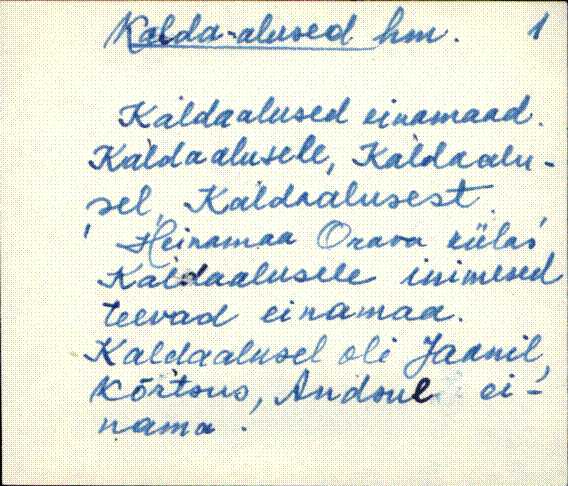 Kalda-alused hm. 1
Kàldaalused einamaad.
Kàldaalusele, Kàldaalu-
sel, Kàldaalusest.
' Heinamaa Orava külas'
Kàldaalusele inimesed
teevad einamaa.
Kàldaalusel oli Jaanil,
Kõrtsus, ei-
nama.